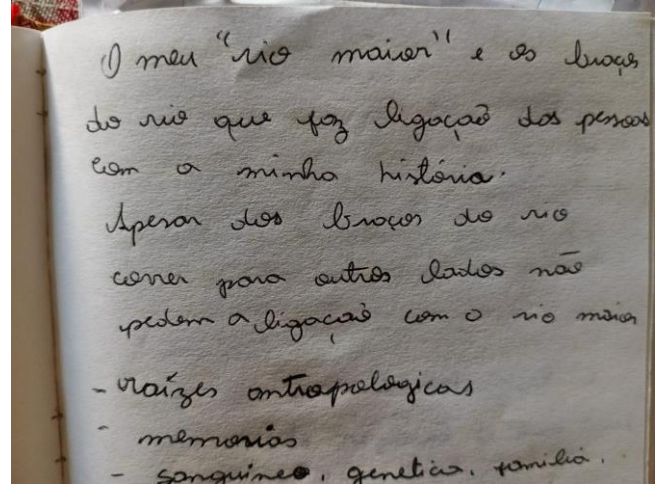 O meu "rio maior" e os braços
do rio que faz ligação das pessoas
com a minha história.
Apesar dos braços do rio
correr para outros lados não
pedem a ligação com o rio maior
- raízes antropologicas
- memorias
- sanguineo, genetica, familia.